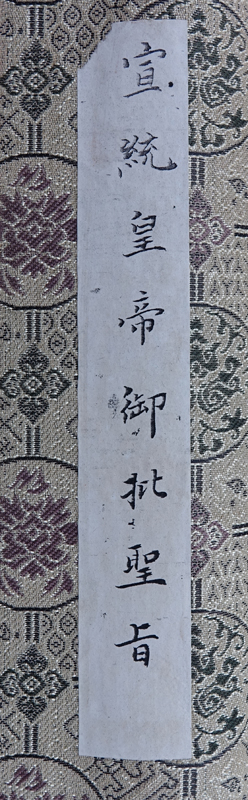 宣統皇帝御批聖旨